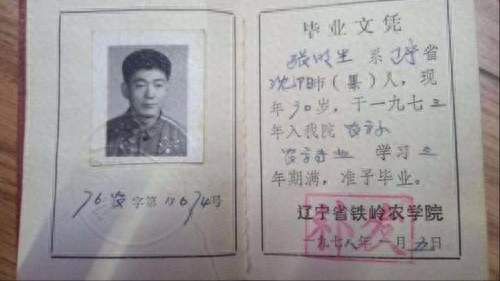 76 农 字第 号
毕业文凭
系辽宁省
沈阳市(县)人,现
年30岁,于一九七三
年入我院农
学习三
年期满,准予毕业。
辽宁省铁岭农学院
一九七八年一月 日
补发